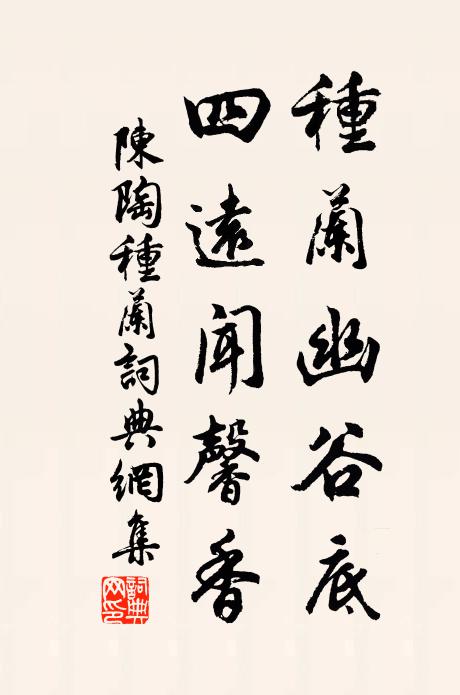 種蘭幽谷底
四遠聞馨香
陳陶種蘭詞典網集
詞典网印